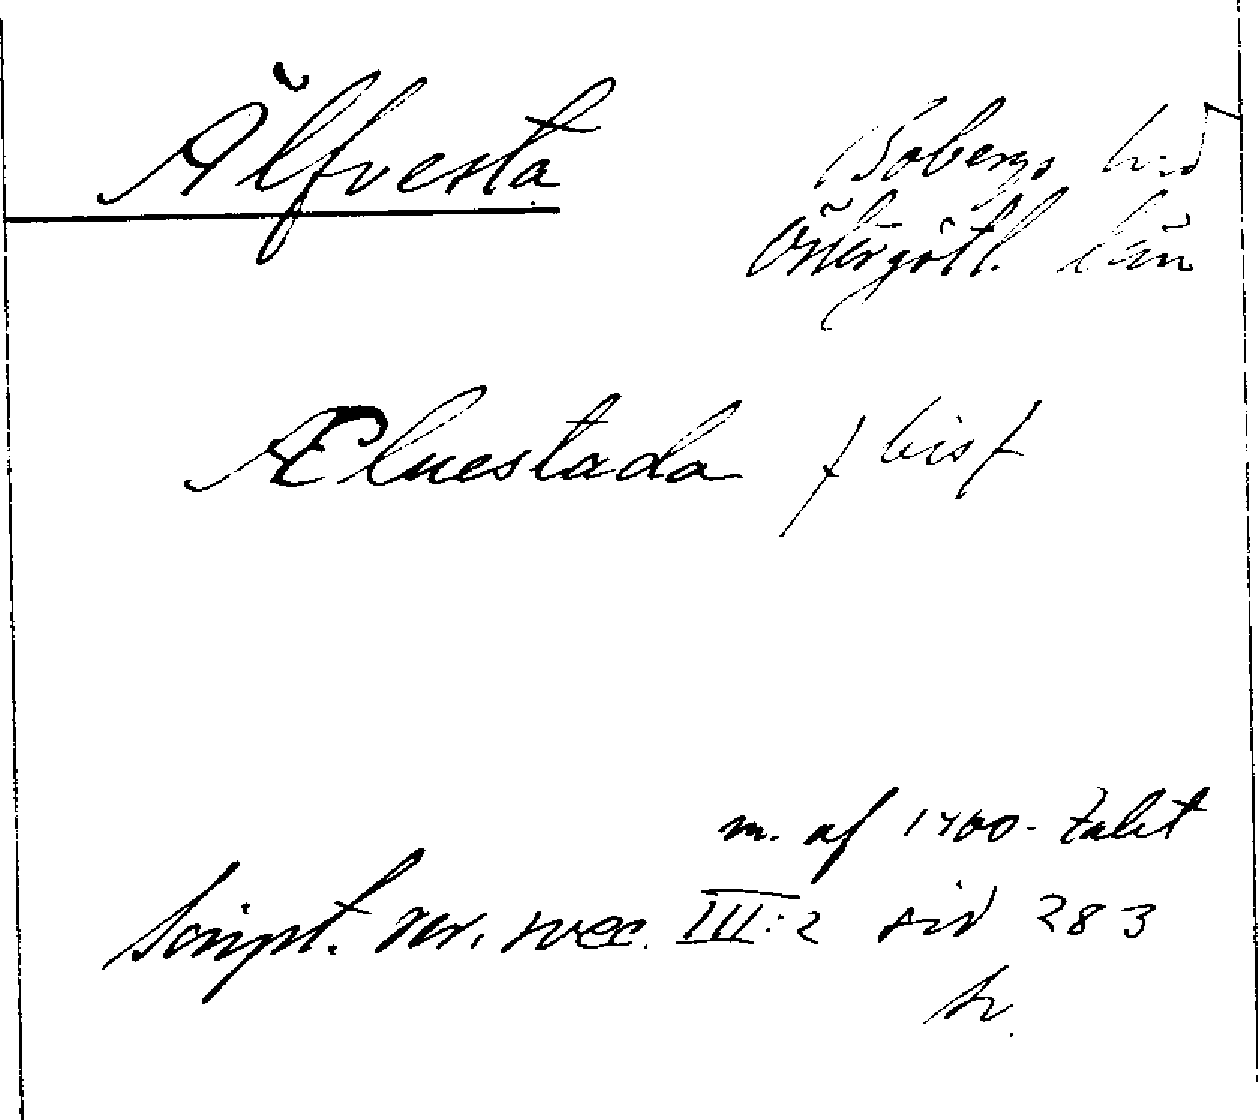 Älfvesta
Bobergs hrd
Östergötl. län
Ælnestada f bisf
m. af 1400-talet
Script. rer. svec. III:2 sid 283